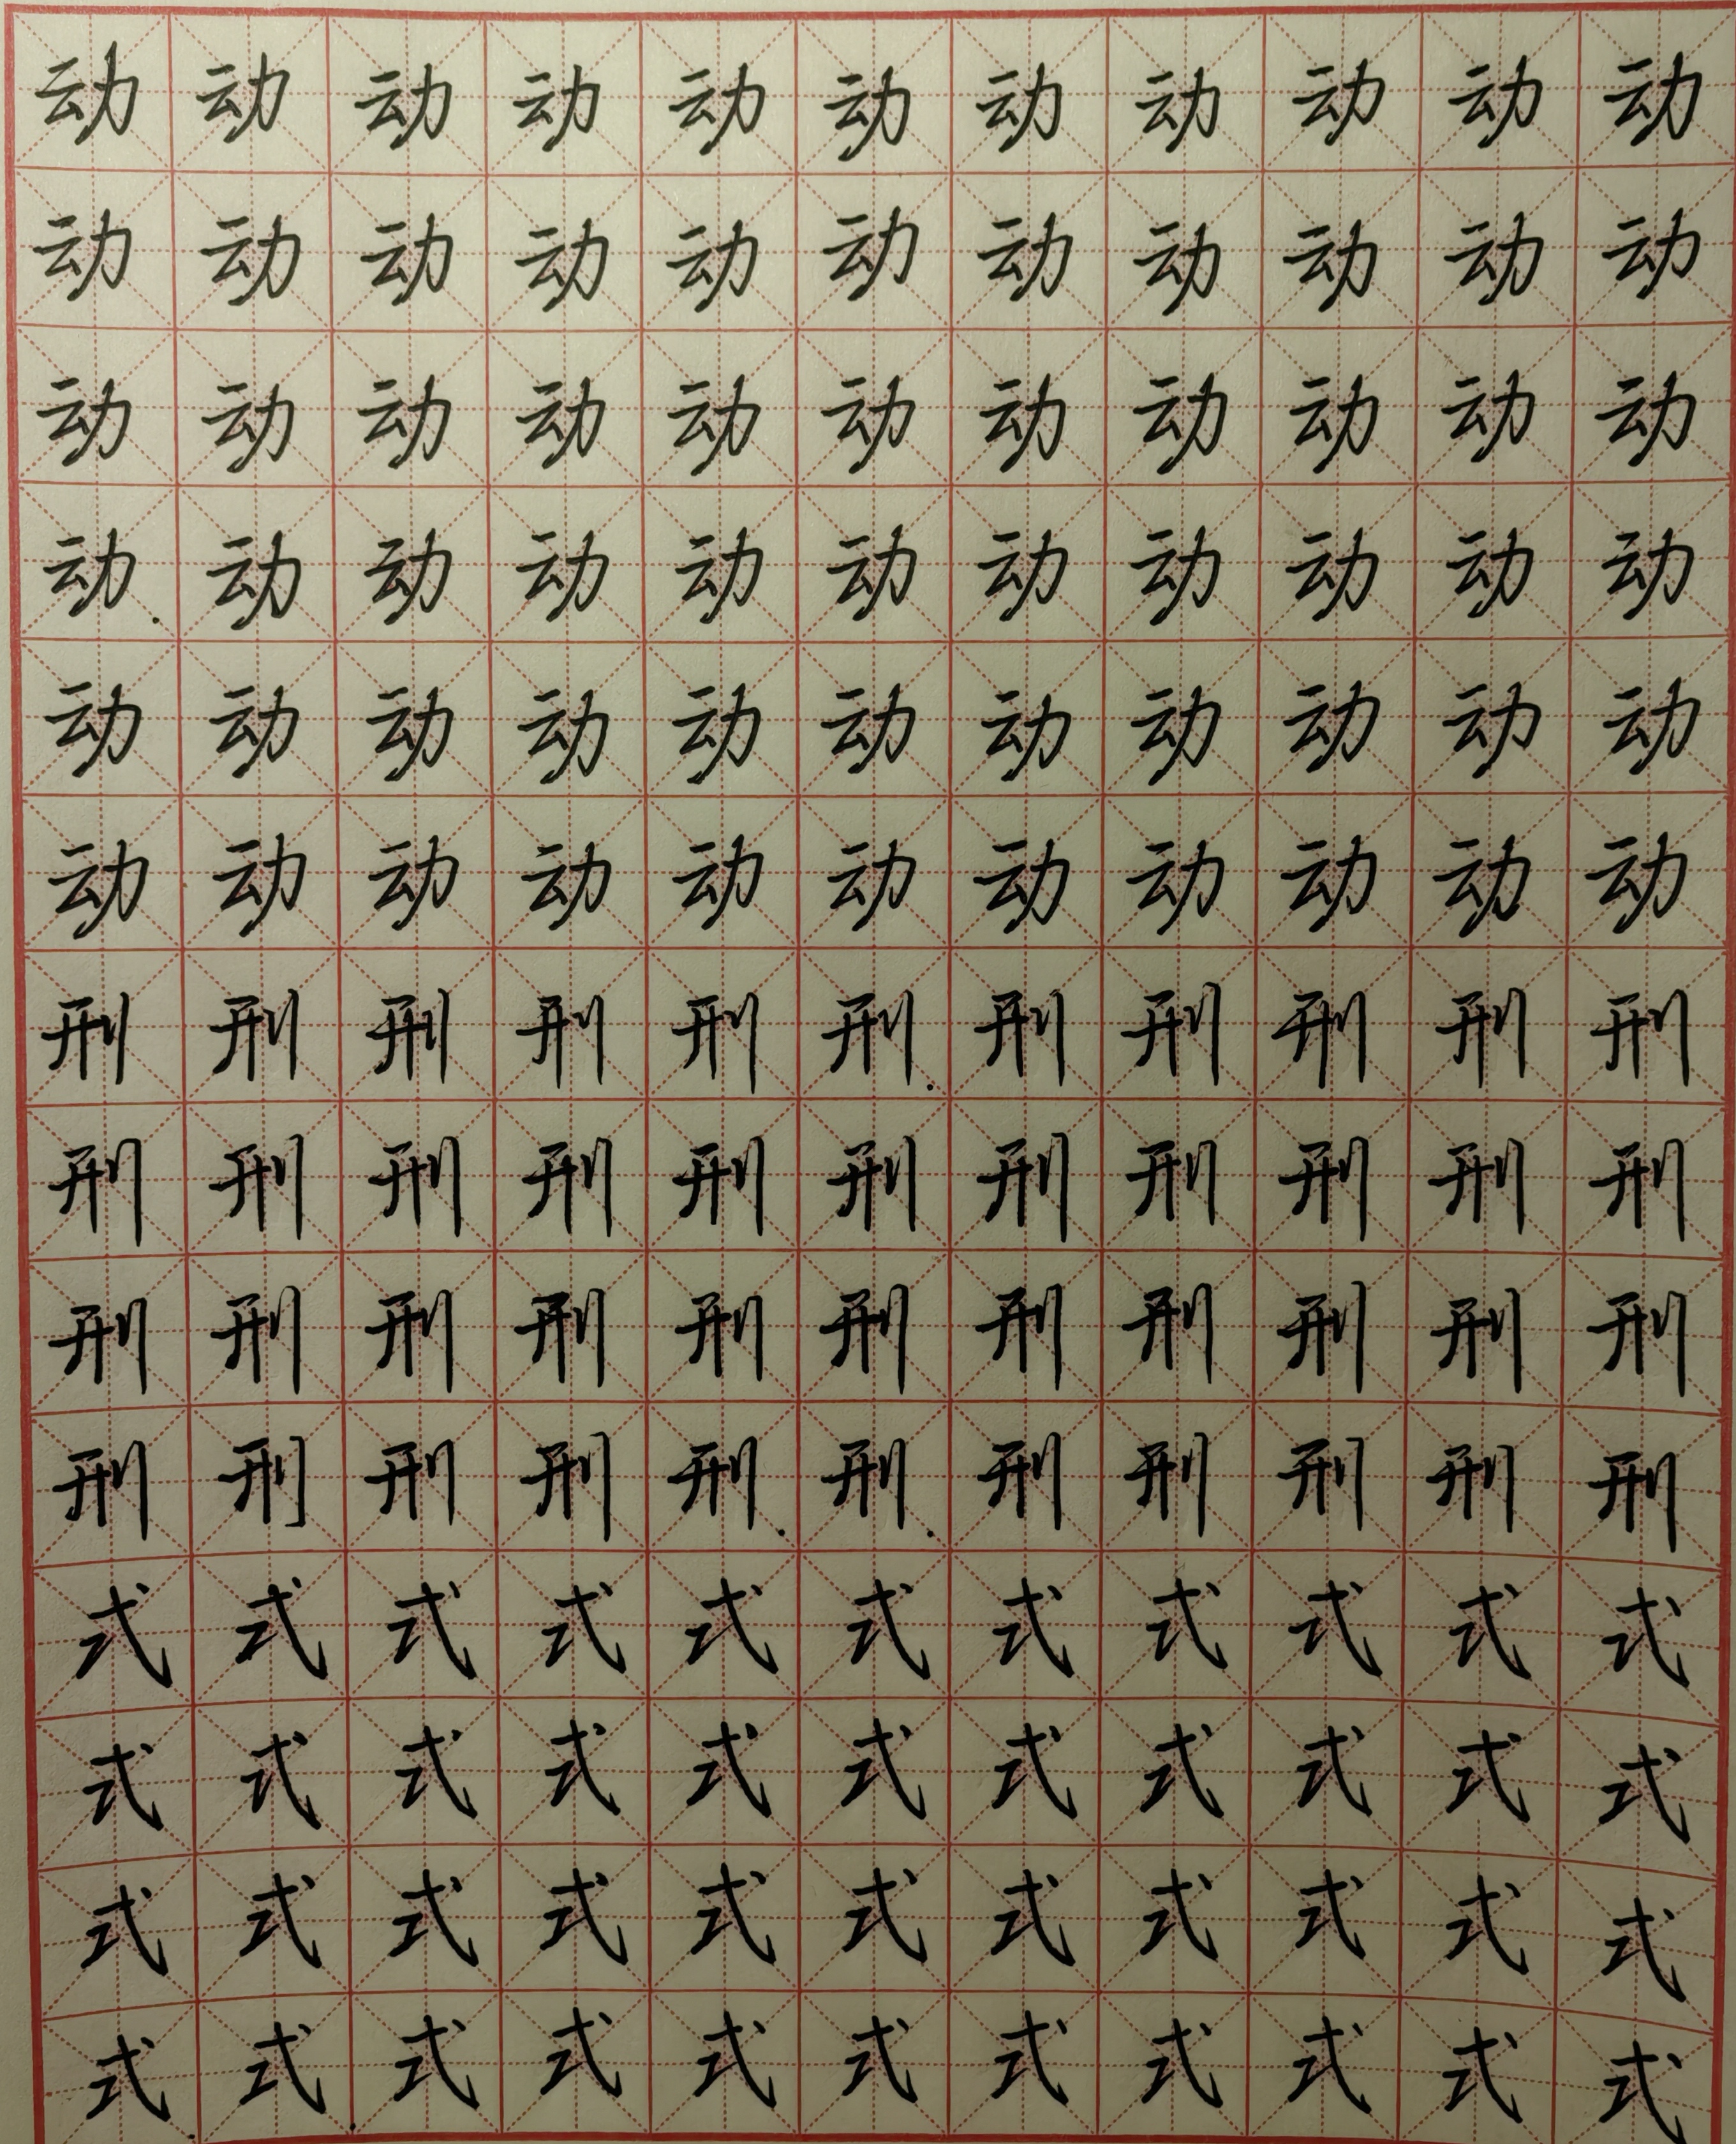 动动动动动动动动动动动
动动动动动动动动动动动
动动动动动动动动动动动
动动动动动动动动动动动
动动动动动动动动动动动
动动动动动动动动动动动
刑刑刑刑刑刑刑刑刑刑刑
刑刑刑刑刑刑刑刑刑刑刑
刑刑刑刑刑刑刑刑刑刑刑
刑刑刑刑刑刑刑刑刑刑刑
式式式式式式式式式式式
式式式式式式式式式式式
式式式式式式式式式式式
式式式式式式式式式式式